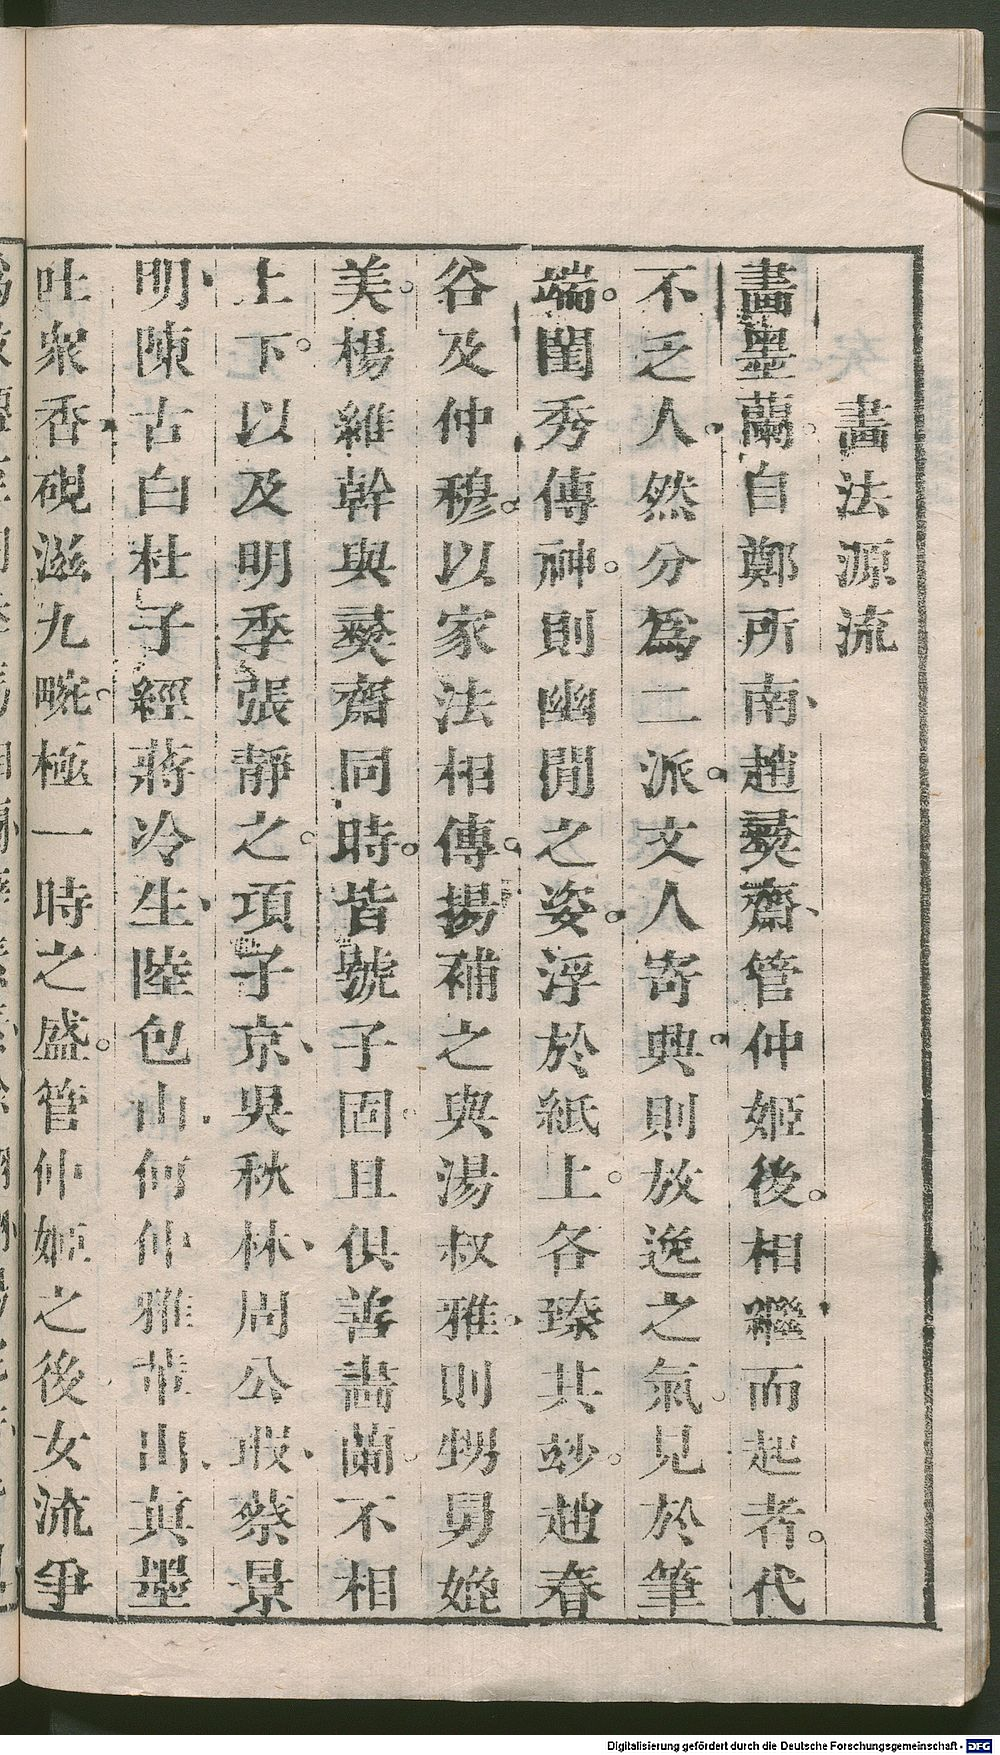 畫法源流
畫墨蘭。自鄭所南、趙彛齋、管仲姬後。相繼而起者。代
不乏人。然分為二派。文人寄興。則放逸之氣。見於筆
端。閨秀傳神。則幽閒之姿。浮於紙上。各臻其玅。趙春
谷及仲穆。以家法相傳。揚補之與湯叔雅。則甥舅媲
美。楊維幹與彛齋同時。皆號子固。且俱善畫蘭。不相
上下。以及明季張靜之。項子京、吳秋林、周公瑕、蔡景
明、陳古白杜子經蔣冷生、陸包山、何仲雅輩出、真墨
吐衆香、硯滋九畹。極一時之盛。管仲姬之後女流爭
Digitalisierung gefördert durch die Deutsche Forschungsgemeinschaft - DFG